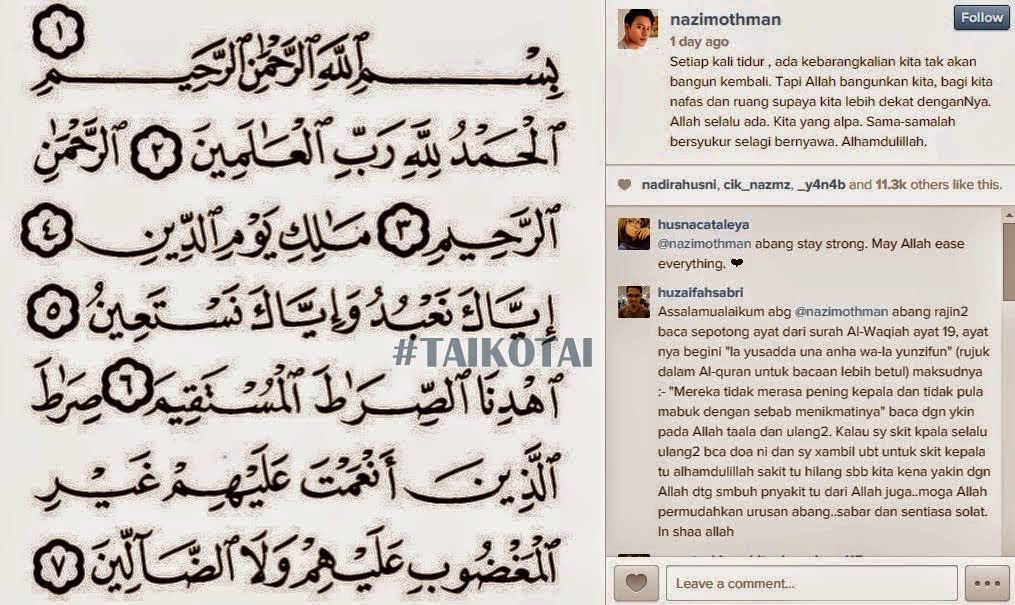 ١
بِسْمِ ٱللَّهِ ٱلرَّحْمَٰنِ ٱلرَّحِيمِ
ٱلْحَمْدُ لِلَّهِ رَبِّ ٱلْعَٰلَمِينَ ٢ ٱلرَّحْمَٰنِ
ٱلرَّحِيمِ ٣ مَٰلِكِ يَوْمِ ٱلدِّينِ ٤
إِيَّاكَ نَعْبُدُ وَإِيَّاكَ نَسْتَعِينُ ٥
#TAIKOTAI
ٱهْدِنَا ٱلصِّرَٰطَ ٱلْمُسْتَقِيمَ ٦ صِرَٰطَ
ٱلَّذِينَ أَنْعَمْتَ عَلَيْهِمْ غَيْرِ
ٱلْمَغْضُوبِ عَلَيْهِمْ وَلَا ٱلضَّآلِّينَ ٧
nazimothman
Follow
1 day ago
Setiap kali tidur , ada kebarangkalian kita tak akan
bangun kembali. Tapi Allah bangunkan kita, bagi kita
nafas dan ruang supaya kita lebih dekat denganNya.
Allah selalu ada. Kita yang alpa. Sama-samalah
bersyukur selagi bernyawa. Alhamdulillah.
nadirahusni, cik_nazmz, _y4n4b and 11.3k others like this.
husnacataleya
@nazimothman abang stay strong. May Allah ease
everything. ❤
huzaifahsabri
Assalamualaikum abg @nazimothman abang rajin2
baca sepotong ayat dari surah Al-Waqiah ayat 19, ayat
nya begini "la yusadda una anha wa-la yunzifun" (rujuk
dalam Al-quran untuk bacaan lebih betul) maksudnya
:- "Mereka tidak merasa pening kepala dan tidak pula
mabuk dengan sebab menikmatinya" baca dgn ykin
pada Allah taala dan ulang2. Kalau sy skit kpala selalu
ulang2 bca doa ni dan sy xambil ubt untuk skit kepala
tu alhamdulillah sakit tu hilang sbb kita kena yakin dgn
Allah dtg smbuh pnyakit tu dari Allah juga..moga Allah
permudahkan urusan abang..sabar dan sentiasa solat.
In shaa allah
Leave a comment...